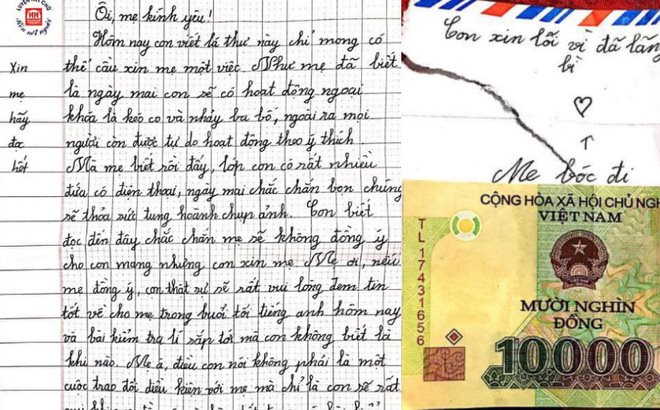 LUYỆN VIẾT CHỮ
Ôi, mẹ kính yêu!
Hôm nay con viết lá thư này chỉ mong có
thể cầu xin mẹ một việc. Như mẹ đã biết
là ngày mai con sẽ có hoạt động ngoại
khóa là kéo co và nhảy ba bố, ngoài ra mọi
người còn được tự do hoạt động theo ý thích
Mà mẹ biết rồi đấy, lớp con có rất nhiều
đứa có điện thoại, ngày mai chắc chắn bọn chúng
sẽ thỏa sức tung hoành chụp ảnh. Con biết
đọc đến đây chắc chắn mẹ sẽ không đồng ý
cho con mang nhưng con xin mẹ. Mẹ ơi, nếu
mẹ đồng ý, con thật sự sẽ rất vui lòng đem tin
tốt về cho mẹ trong buổi tối tiếng anh hôm nay
và bài kiểm tra lí sắp tới mà con không biết là
khi nào. Mẹ à, điều con nói không phải là một
cuộc trao đổi điều kiện với mẹ mà chỉ là con sẽ rất
Xin
mẹ
hãy
đọc
hết
Con xin lỗi vì đã lãng
bì
Mẹ bóc đi
CỘNG HÒA XÃ HỘI CHỦ NGH
VIỆT NAM
TL17431656
MƯỜI NGHÌN
ĐỒNG
10000